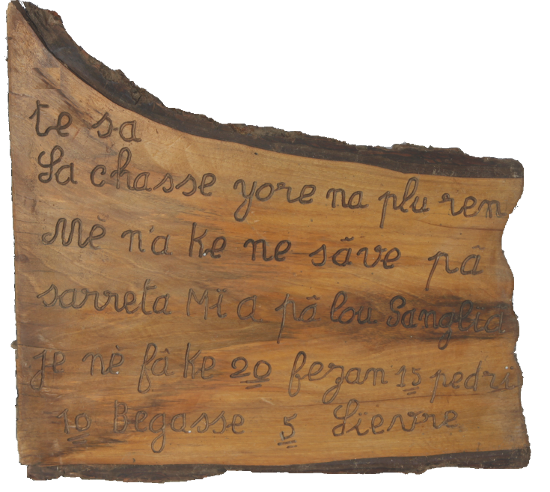 te sa
La chasse yore na plu ren
Mè n'a ke ne sãve pâ
sarreta Mï a pâ lou Sanglié
je nè fâ ke 20 fezan 15 pedri
10 Bégasse 5 Lïevre